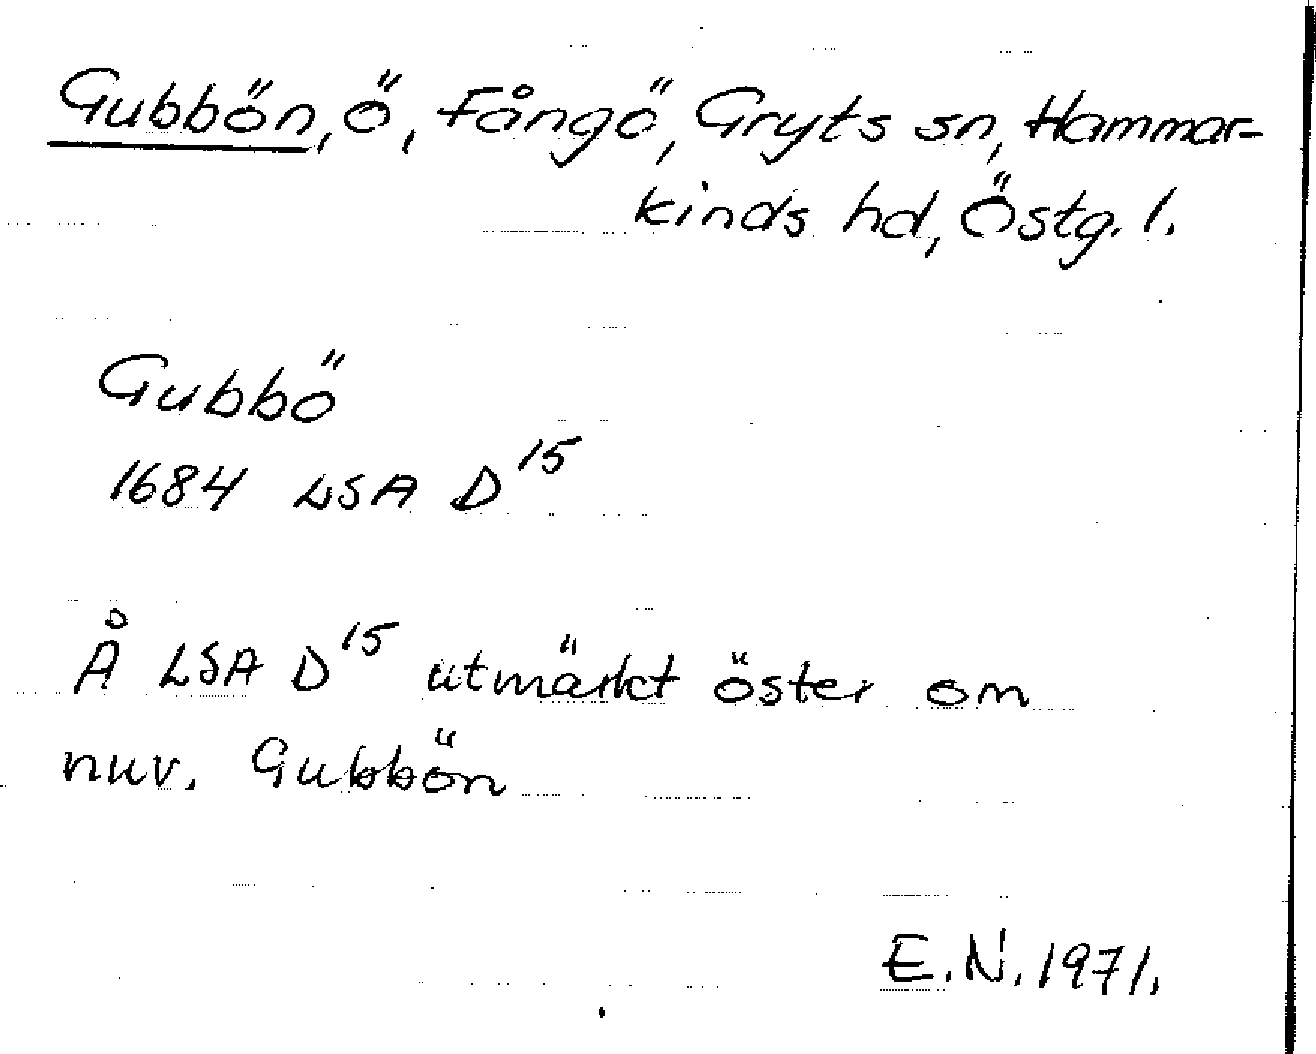 Gubbön, ö, Fångö, Gryts sn, Hammar-
kinds hd, Östg. l.
Gubbö
1684 LSA D¹⁵
Å LSA D¹⁵ utmärkt öster om
nuv. Gubbön
E.N. 1971.